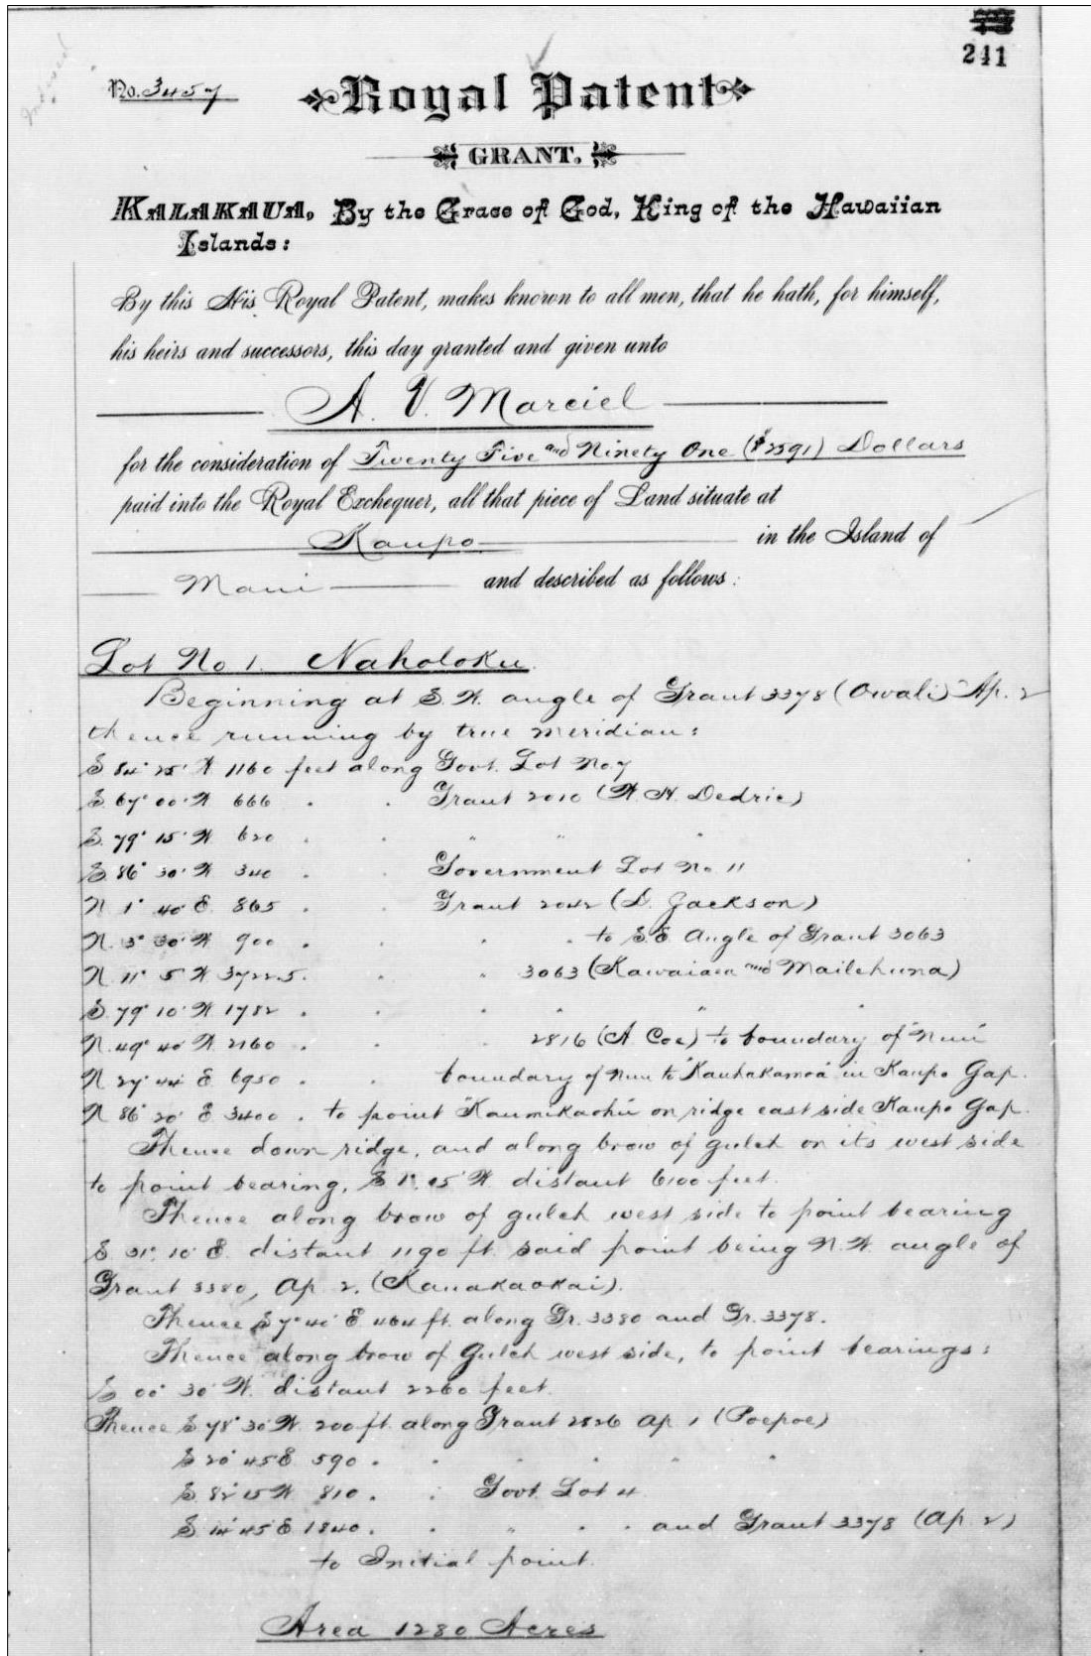 241
No. 3457
Royal Patent
GRANT.
KALAKAUA, By the Grace of God, King of the Hawaiian
Islands:
By this His Royal Patent, makes known to all men, that he hath, for himself,
his heirs and successors, this day granted and given unto
A. V. Marciel
for the consideration of Twenty Five and Ninety One ($2591) Dollars
paid into the Royal Exchequer, all that piece of Land situate at
Kaupo in the Island of
Maui and described as follows:
Lot No 1. Naholoku.
Beginning at S.W. angle of Grant 3378 (Owali) Ap. 2
thence running by true meridian:
S 84° 25' W 1160 feet along Govt. Lot No. 7
S. 67° 00' W 666 . . Grant 2010 (W. H. Dedric)
S. 79° 15' W. 620 . . " " "
S. 86° 30' W 340 . . Government Lot No 11
N 1° 40' E. 865 . . Grant 2042 (D. Jackson)
N. 3° 30' W 900 . . . . to S.E Angle of Grant 3063
N. 11° 5' W 3722.5. . " 3063 (Kawaiaea and Mailehuna)
S. 79° 10' W 1782 . . . " "
N. 49° 40' W 2160 . . . 2816 (A. Coe) to boundary of "Nuu"
N 27° 44' E. 6950 . . boundary of Nuu to "Kauhakamoa" in Kaupo Gap.
N 86° 20' E 3400 . to point "Kaumikaohu" on ridge east side Kaupo Gap.
Thence down ridge, and along brow of gulch on its west side
to point bearing, S 1°. 15' W distant 6100 feet.
Thence along brow of gulch west side to point bearing
S 31°. 10' E. distant 1190 ft. said point being N.W. angle of
Grant 3380, Ap 2. (Kanakaokai).
Thence S 7° 40' E 464 ft. along Gr. 3380 and Gr. 3378.
Thence along brow of Gulch west side, to point bearings:
S 00° 30' W. distant 2260 feet.
Thence S 78° 30' W. 200 ft. along Grant 2826 Ap 1 (Poepoe)
S 20° 45' E 590 . . . . " .
S. 82° 15' W 810 . . Govt. Lot 4
S 14° 45' E 1840. . " . . and Grant 3378 (Ap. 2)
to Initial point.
Area 1280 Acres